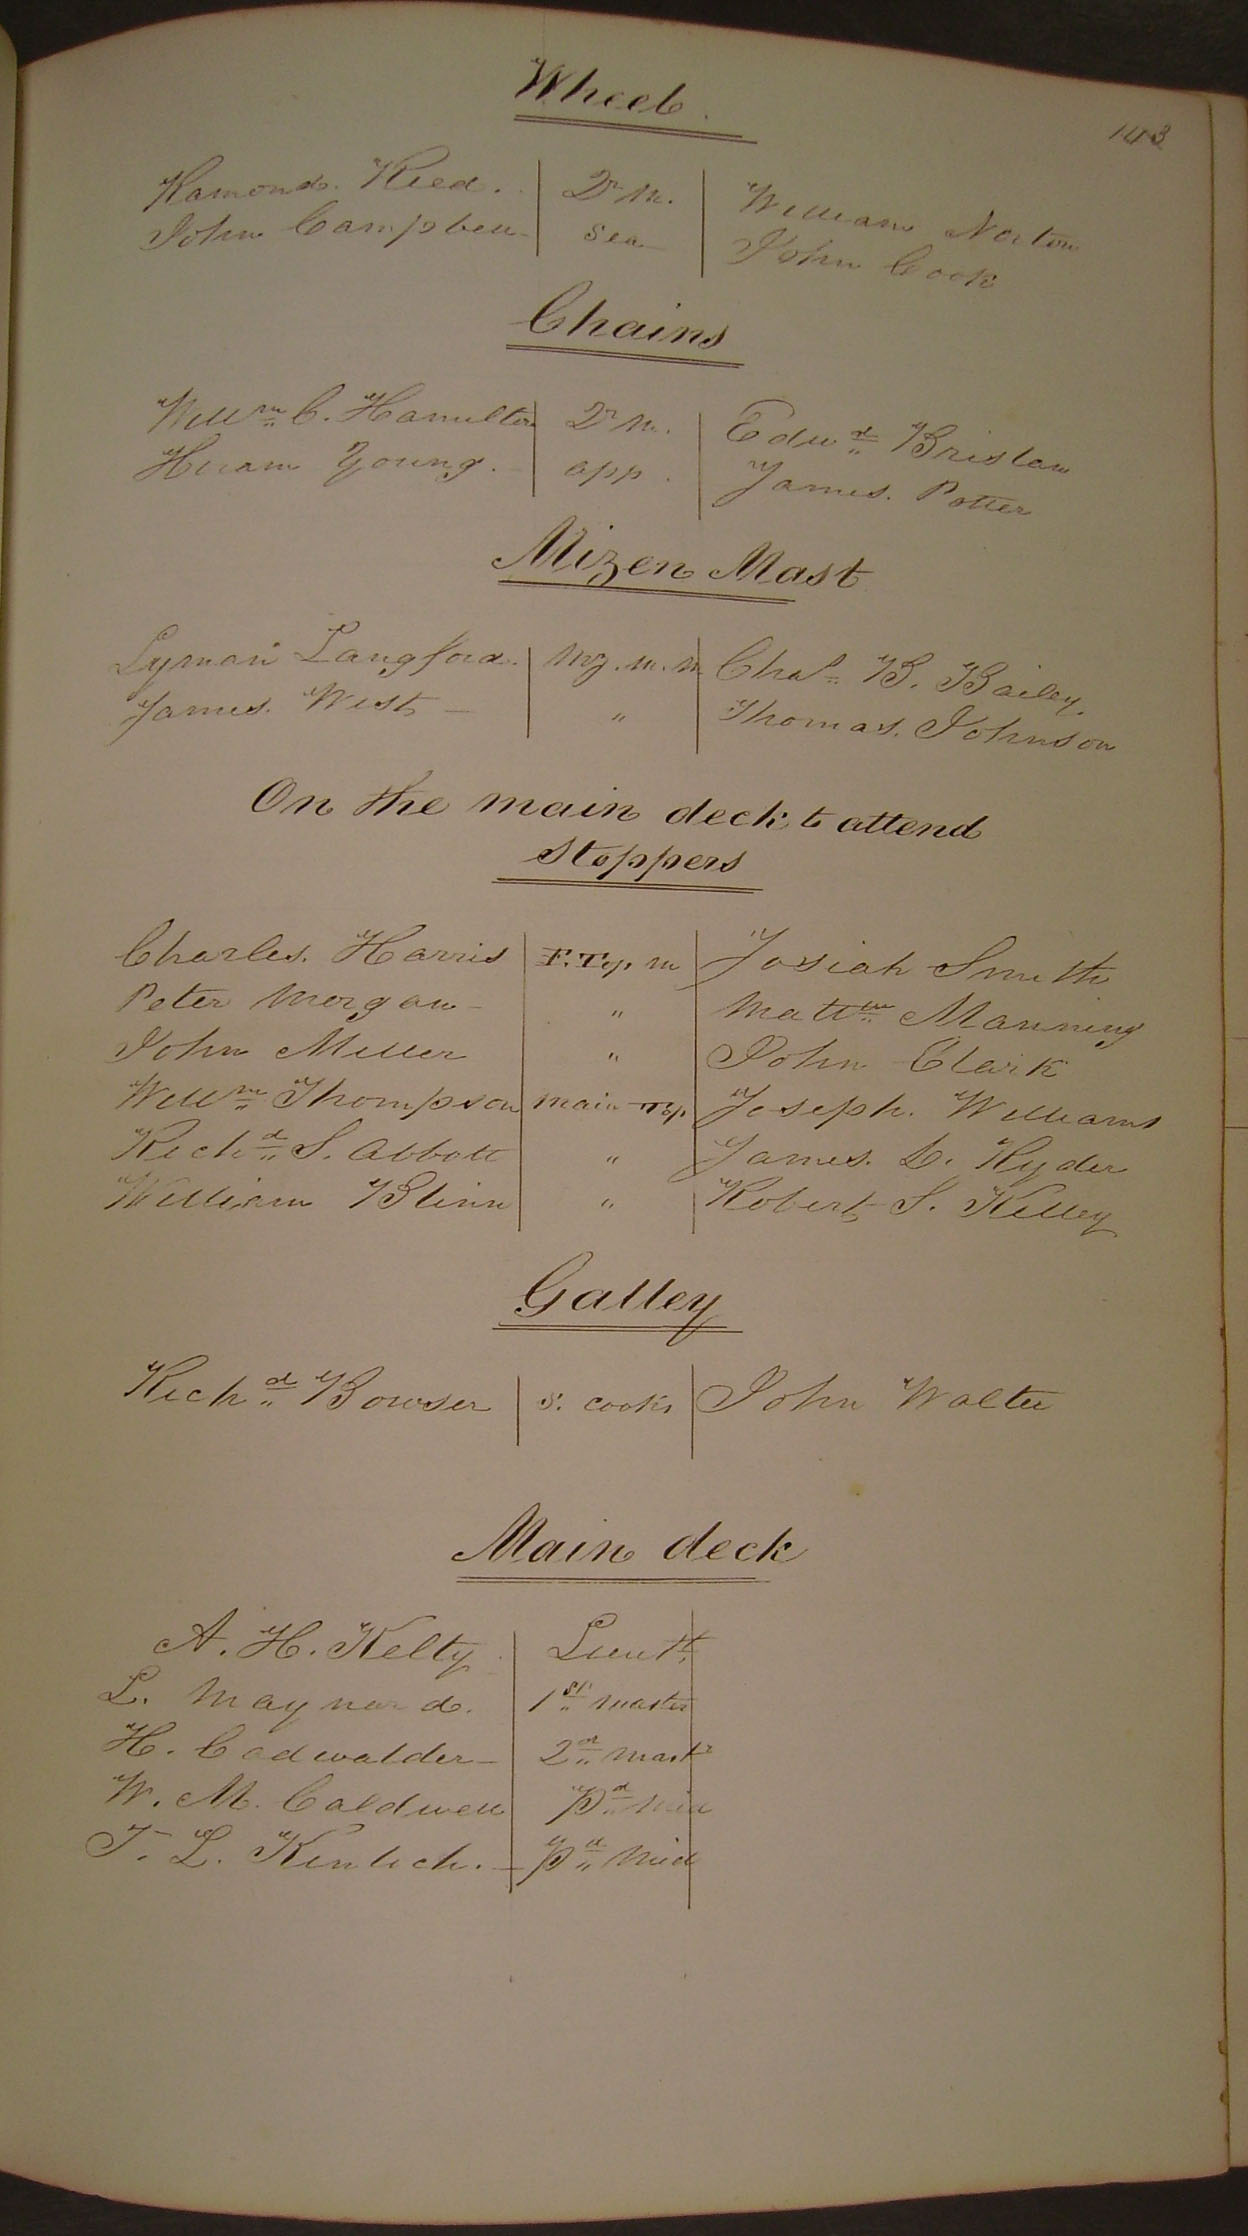 143
Wheel.
Ramond. Reed. Qr M. William Norton
John Campbell Sea John Cook
Chains
Willm C. Hamilton Qr M. Edwd Bristow
Hiram Young. app. James. Potter
Mizen Mast
Lyman Langford. Mz. M. M Chas B. Bailey.
James. West " Thomas. Johnson
On the main deck to attend
Stoppers
Charles. Harris F. Top. M Josiah Smith
Peter Morgan " Mattw Manning
John Miller " John Clark
Willm Thompson Main Top. Joseph. Williams
Richd S. Abbott " James. D. Ryder
William Blinn " Robert S. Kelley
Galley
Richd Bowser S. Cooks John Walter
Main deck
A. H. Kelty Lieutt.
L. Maynard. 1st Master
H. Cadwalder 2nd Mastr
W. M. Caldwell Pd Mid
T. L. Kinloch. Pd Mid